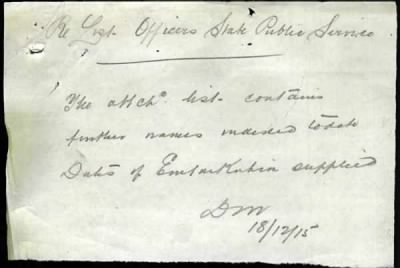 Re List Officers State Public Service
The attchd list contains
further names needed to date
Dates of Embarkation supplied
DM
18/12/15